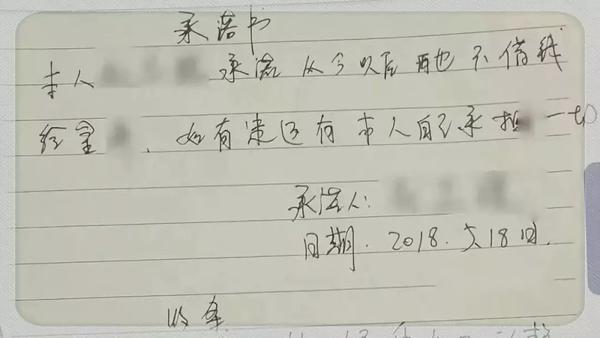 承诺书
本人 承诺 从今以后 再也不借钱
给 , 如有 有本人自己承担一切
承诺人:
日期. 2018. 5月18日.
收条